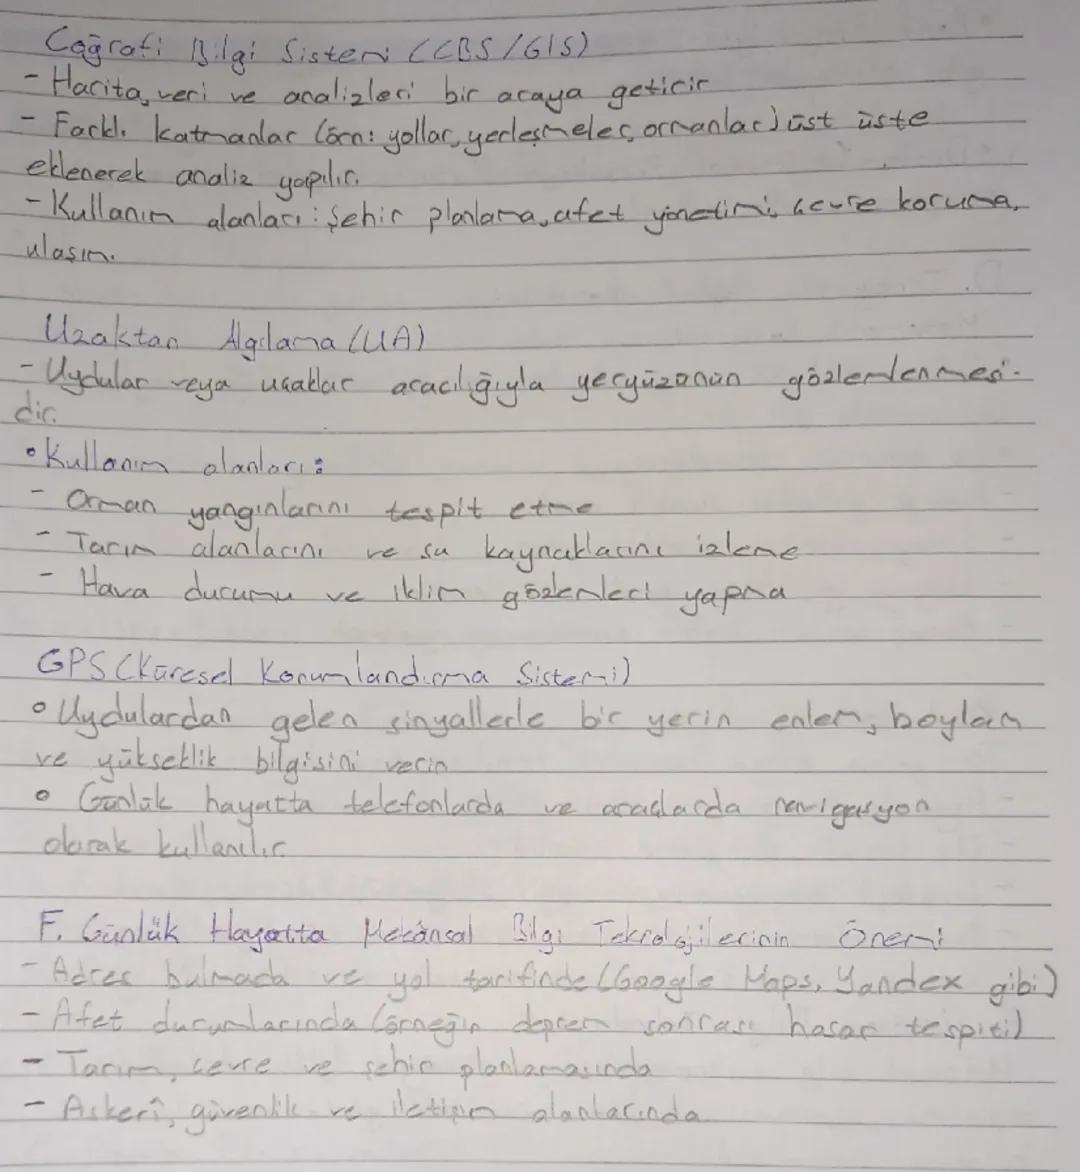 Coğrafi Bilgi Sistemi (CBS/GIS)
- Harita, veri ve analizleri bir araya getirir
- Farklı katmanlar (örn: yollar, yerleşmeler, ormanlar) üst üste
eklenerek analiz yapılır.
- Kullanım alanları: Şehir planlama, afet yönetimi, çevre koruma,
ulaşım.
Uzaktan Algılama (UA)
- Uydular veya uçaklar aracılığıyla yeryüzünün gözlemlenmesi-
dir.
• Kullanım alanları:
- Orman yangınlarını tespit etme
- Tarım alanlarını ve su kaynaklarını izleme
- Hava durumu ve iklim gözlemleri yapma
GPS (Küresel Konumlandırma Sistemi)
• Uydulardan gelen sinyallerle bir yerin enlem, boylam
ve yükseklik bilgisini verir
• Günlük hayatta telefonlarda ve araçlarda navigasyon
olarak kullanılır
F. Günlük Hayatta Mekânsal Bilgi Teknolojilerinin Önemi
- Adres bulmada ve yol tarifinde (Google Maps, Yandex gibi)
- Afet durumlarında (örneğin deprem sonrası hasar tespiti)
- Tarım, çevre ve şehir planlamasında
- Askerî, güvenlik ve iletişim alanlarında